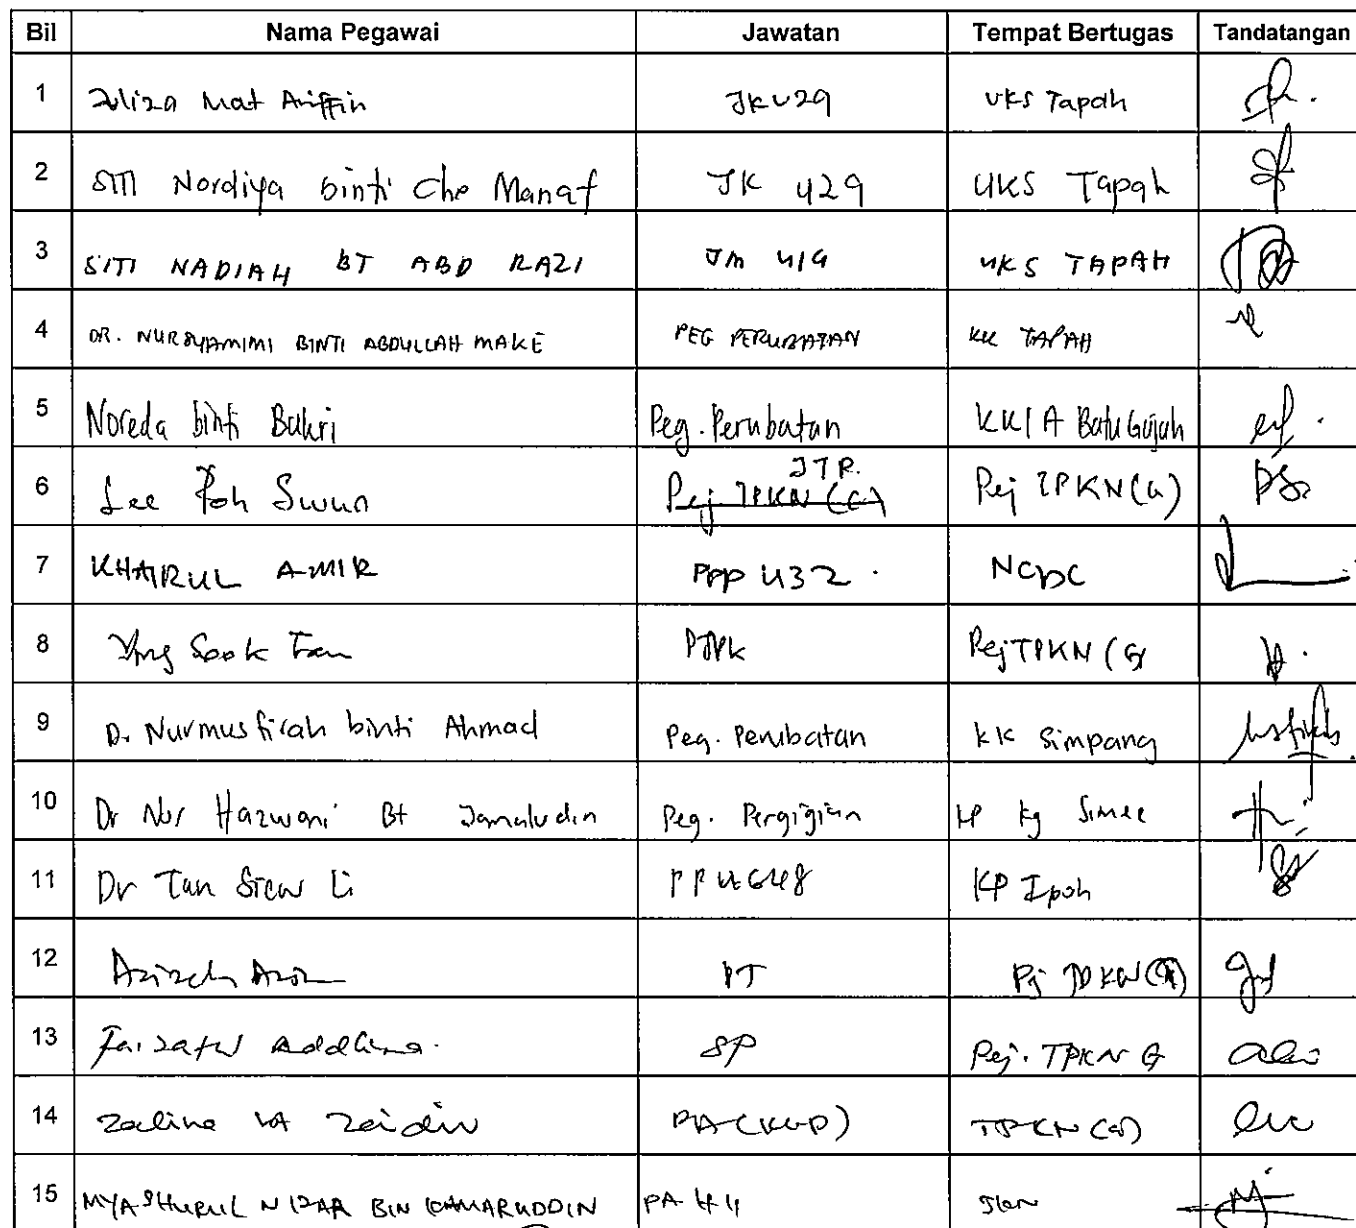 Bil Nama Pegawai Jawatan Tempat Bertugas Tandatangan
1 Zuliza Mat Ariffin JKU29 UKS Tapah
2 SITI Nordiya binti Che Manaf JK U29 UKS Tapah
3 SITI NADIAH BT ABD RAZI JM U19 UKS TAPAH
4 DR. NURSYAMIMI BINTI ABDULLAH MAKE PEG PERUBATAN KK TAPAH
5 Noreda binti Bakri Peg. Perubatan KKIA Batu Gajah
JTP.
6 Lee Poh Swun Pej TPKN (G) Pej TPKN(G)
7 KHAIRUL AMIR PPP U32. NCDC
8 Sook PJPK Pej TPKN (G
9 Dr Nurmusfirah binti Ahmad Peg. Perubatan KK Simpang
10 Dr Nur Hazwani Bt Jamaludin Peg. Pergigian KP Kg Simee
11 Dr Tan Siew Li PPUG48 KP Ipoh
12 Azizah PT Pj TPKN(G)
13 Faizatul SP Pej. TPKN G
14 Zalina Zaidin PA (KUP) TPKN (G)
15 MYASHURUL NIZAR BIN KAMARUDDIN PA